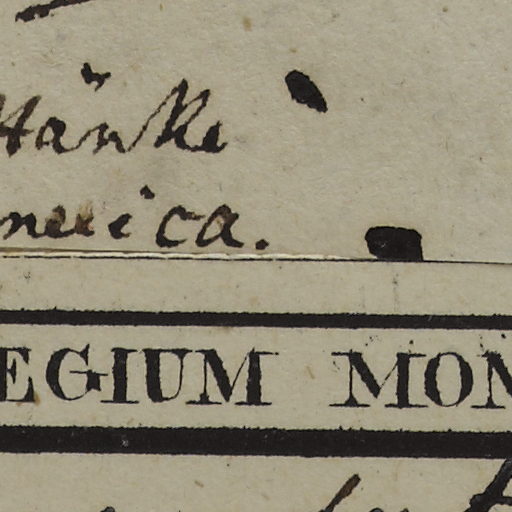 Hänke
merica.
EGIUM MON